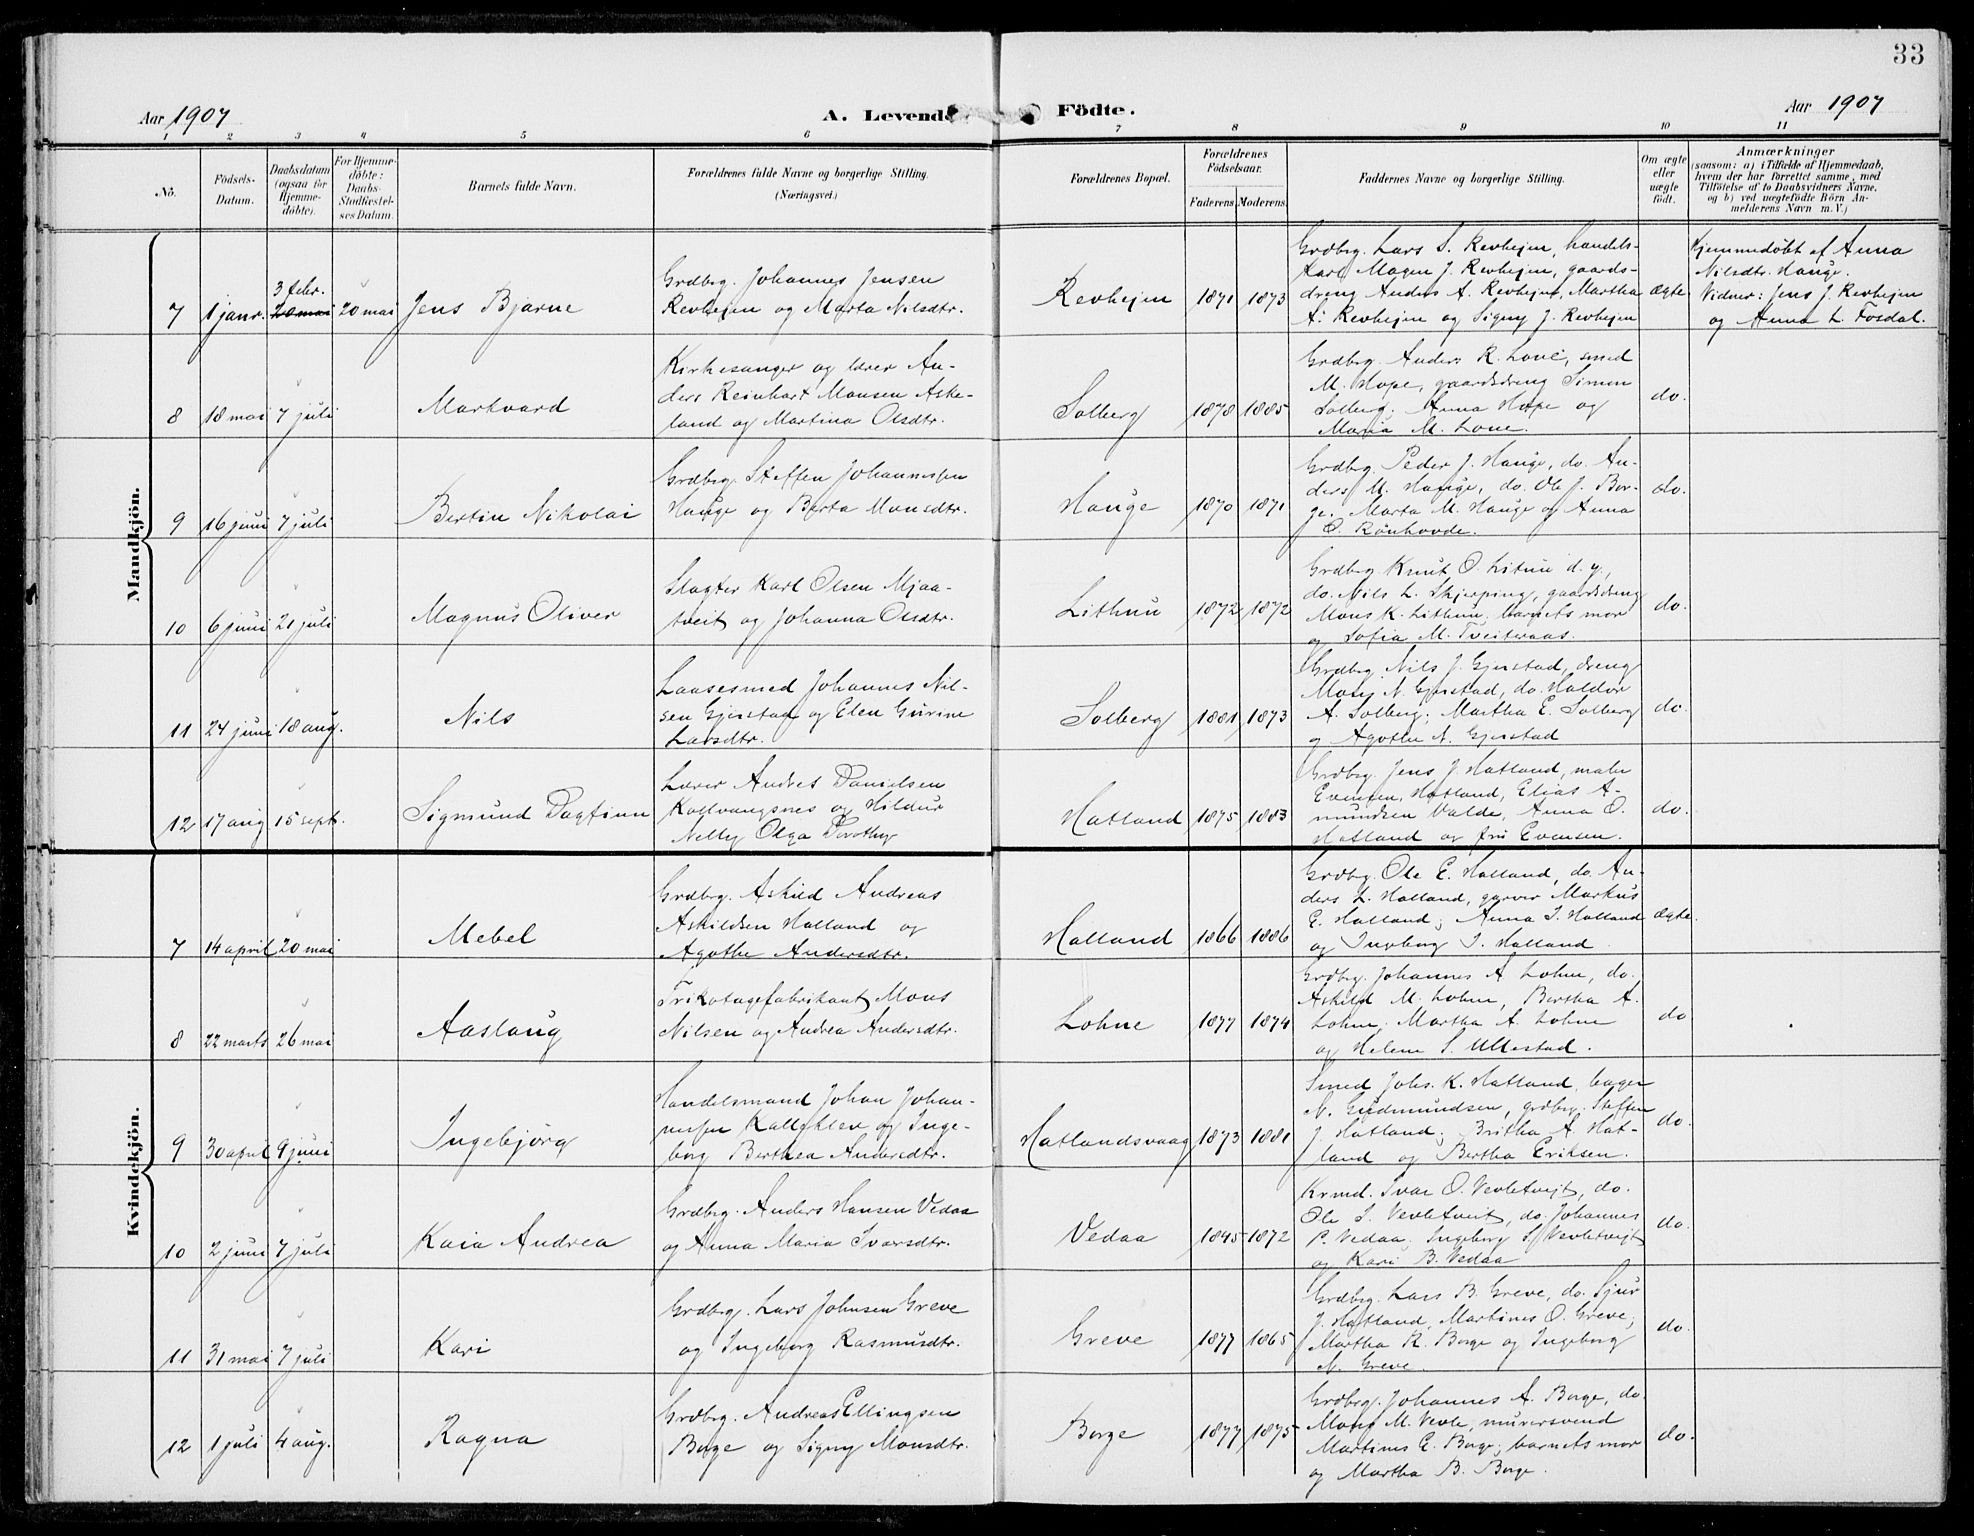 33
Aar 1907
A. Levende Födte.
Aar 1907
1 2 3 4 5 6 7 8 9 10 11
No.
Födsels-
Datum.
Daabsdatum
(ogsaa for
Hjemme-
döbte).
For Hjemme-
döbte:
Daabs-
Stadfæstel-
ses Datum.
Barnets fulde Navn.
Forældrenes fulde Navne og borgerlige Stilling.
(Næringsvei.)
Forældrenes Bopæl.
Forældrenes
Födselsaar.
Faderens
Moderens
Faddernes Navne og borgerlige Stilling.
Om ægte
eller
uægte
födt.
Anmærkninger
(saasom: a) i Tilfælde af Hjemmedaab,
hvem der har forrettet samme, med
Tilföielse af to Daabsvidners Navne,
og b) ved uægtefödte Börn An-
melderens Navn m. V.)
Mandkjön.
7
1 janr.
3 febr.
20 mai
20 mai
Jens Bjarne
Grdbrg. Johannes Jensen
Revhejen og Marta Nilsdtr.
Revhejen
1871
1873
Grdbrg. Lars S. Revhejen, handels-
karl Mogen J. Revhejen, gaards-
dreng Anders A. Revhejen, Martha
A. Revhejen og Signy J. Revhejen
ægte
Hjemmedöbt af Anna
Nilsdtr. Hauge.
Vidner: Jens J. Revhejen
og Anna L. Fosdal.
8
18 mai
7 juli
Markvard
Kirkesanger og lærer An-
ders Reinhart Monsen Aske-
land og Martina Olsdtr.
Solberg
1878
1885
Grdbrg. Anders R. Lone, smed
M. Hope, gaardsdreng Simon
Solberg, Anna Hope og
Maria M. Lone.
do.
9
16 juni
7 juli
Bertin Nikolai
Grdbrg. Steffen Johannessen
Hauge og Berta Monsdtr.
Hauge
1870
1871
Grdbrg. Peder J. Hauge, do. An-
ders M. Hauge, do. Ole J. Bor-
ge, Marta M. Hauge og Anna
O. Rönhovde.
do.
10
6 juni
21 juli
Magnus Oliver
Slagter Karl Olsen Mjaa-
tveit og Johanna Olsdtr.
Lithun
1872
1872
Grdbrg. Knut O. Litun d. y.,
do. Nils L. Skjerping, gaardsdreng
Mons K. Lithun, barnets mor
og Sofia M. Tveiteraas.
do.
11
24 juni
18 aug.
Nils
Laasesmed Johannes Nil-
sen Gjerstad og Elen Gurine
Larsdtr.
Solberg
1881
1873
Grdbrg. Nils J. Gjerstad, dreng
Mons N. Gjerstad, do. Haldor
A. Solberg, Martha E. Solberg
og Agothe N. Gjerstad
do.
12
17 aug
15 sept.
Sigmund Dagfinn
Lærer Andres Danielsen
Kollvangsnes og Hildur
Nelly Olga Dorothy
Hatland
1875
1883
Grdbrg. Jens J. Hatland, maler
Evensen, Hatland, Elias A-
mundsen Valde, Anna O.
Hatland og fru Evensen.
do.
Kvindekjön.
7
14 april
20 mai
Mebel
Grdbrg. Askild Andreas
Askildsen Halland og
Agothe Andersdtr.
Halland
1866
1886
Grdbrg. Ole E. Halland, do. An-
ders L. Halland, garver Markus
E. Halland, Anna I. Halland
og Ingborg I. Halland
ægte.
8
22 marts
26 mai
Aaslaug
Trikotagefabrikant Mons
Nilsen og Andrea Andersdtr.
Lohne
1877
1874
Grdbrg. Johannes A. Lohne, do.
Askild M. Lohne, Bertha A.
Lohne, Martha A. Lohne
og Helene S. Ullestad.
do
9
30 april
9 juni
Ingebjörg
Handelsmand Johan Johan-
nessen Kalleklev og Inge-
borg Berthea Andersdtr.
Hatlandsvaag
1873
1881
Smed Johs. K. Hatland, bager
N. Gudmundsen, grdbrg. Steffen
J. Hatland, Britha A. Hat-
land og Bertha Eriksen.
do.
10
2 juni
7 juli
Kaia Andrea
Grdbrg. Anders Hansen Vedaa
og Anna Maria Iversdtr.
Vedaa
1845
1872
Krmd. Ivar O. Vevletveit, do.
Ole I. Vevletveit, do. Johannes
P. Vedaa, Ingeborg I. Vevletveit
og Kari B. Vedaa
do.
11
31 mai
7 juli
Kari
Grdbrg. Lars Johnsen Greve
og Ingeborg Rasmusdtr.
Greve
1877
1865
Grdbrg. Lars B. Greve, do. Sjur
J. Hatland, Martines O. Greve,
Martha R. Borge og Ingeborg
N. Greve.
do.
12
1 juli
4 aug.
Ragna
Grdbrg. Andreas Ellingsen
Borge og Signy Monsdtr.
Borge
1877
1875
Grdbrg. Johannes A. Borge, do.
Mons M. Vevle, murersvend
Martines E. Borge, barnets mor
og Martha B. Borge.
do.